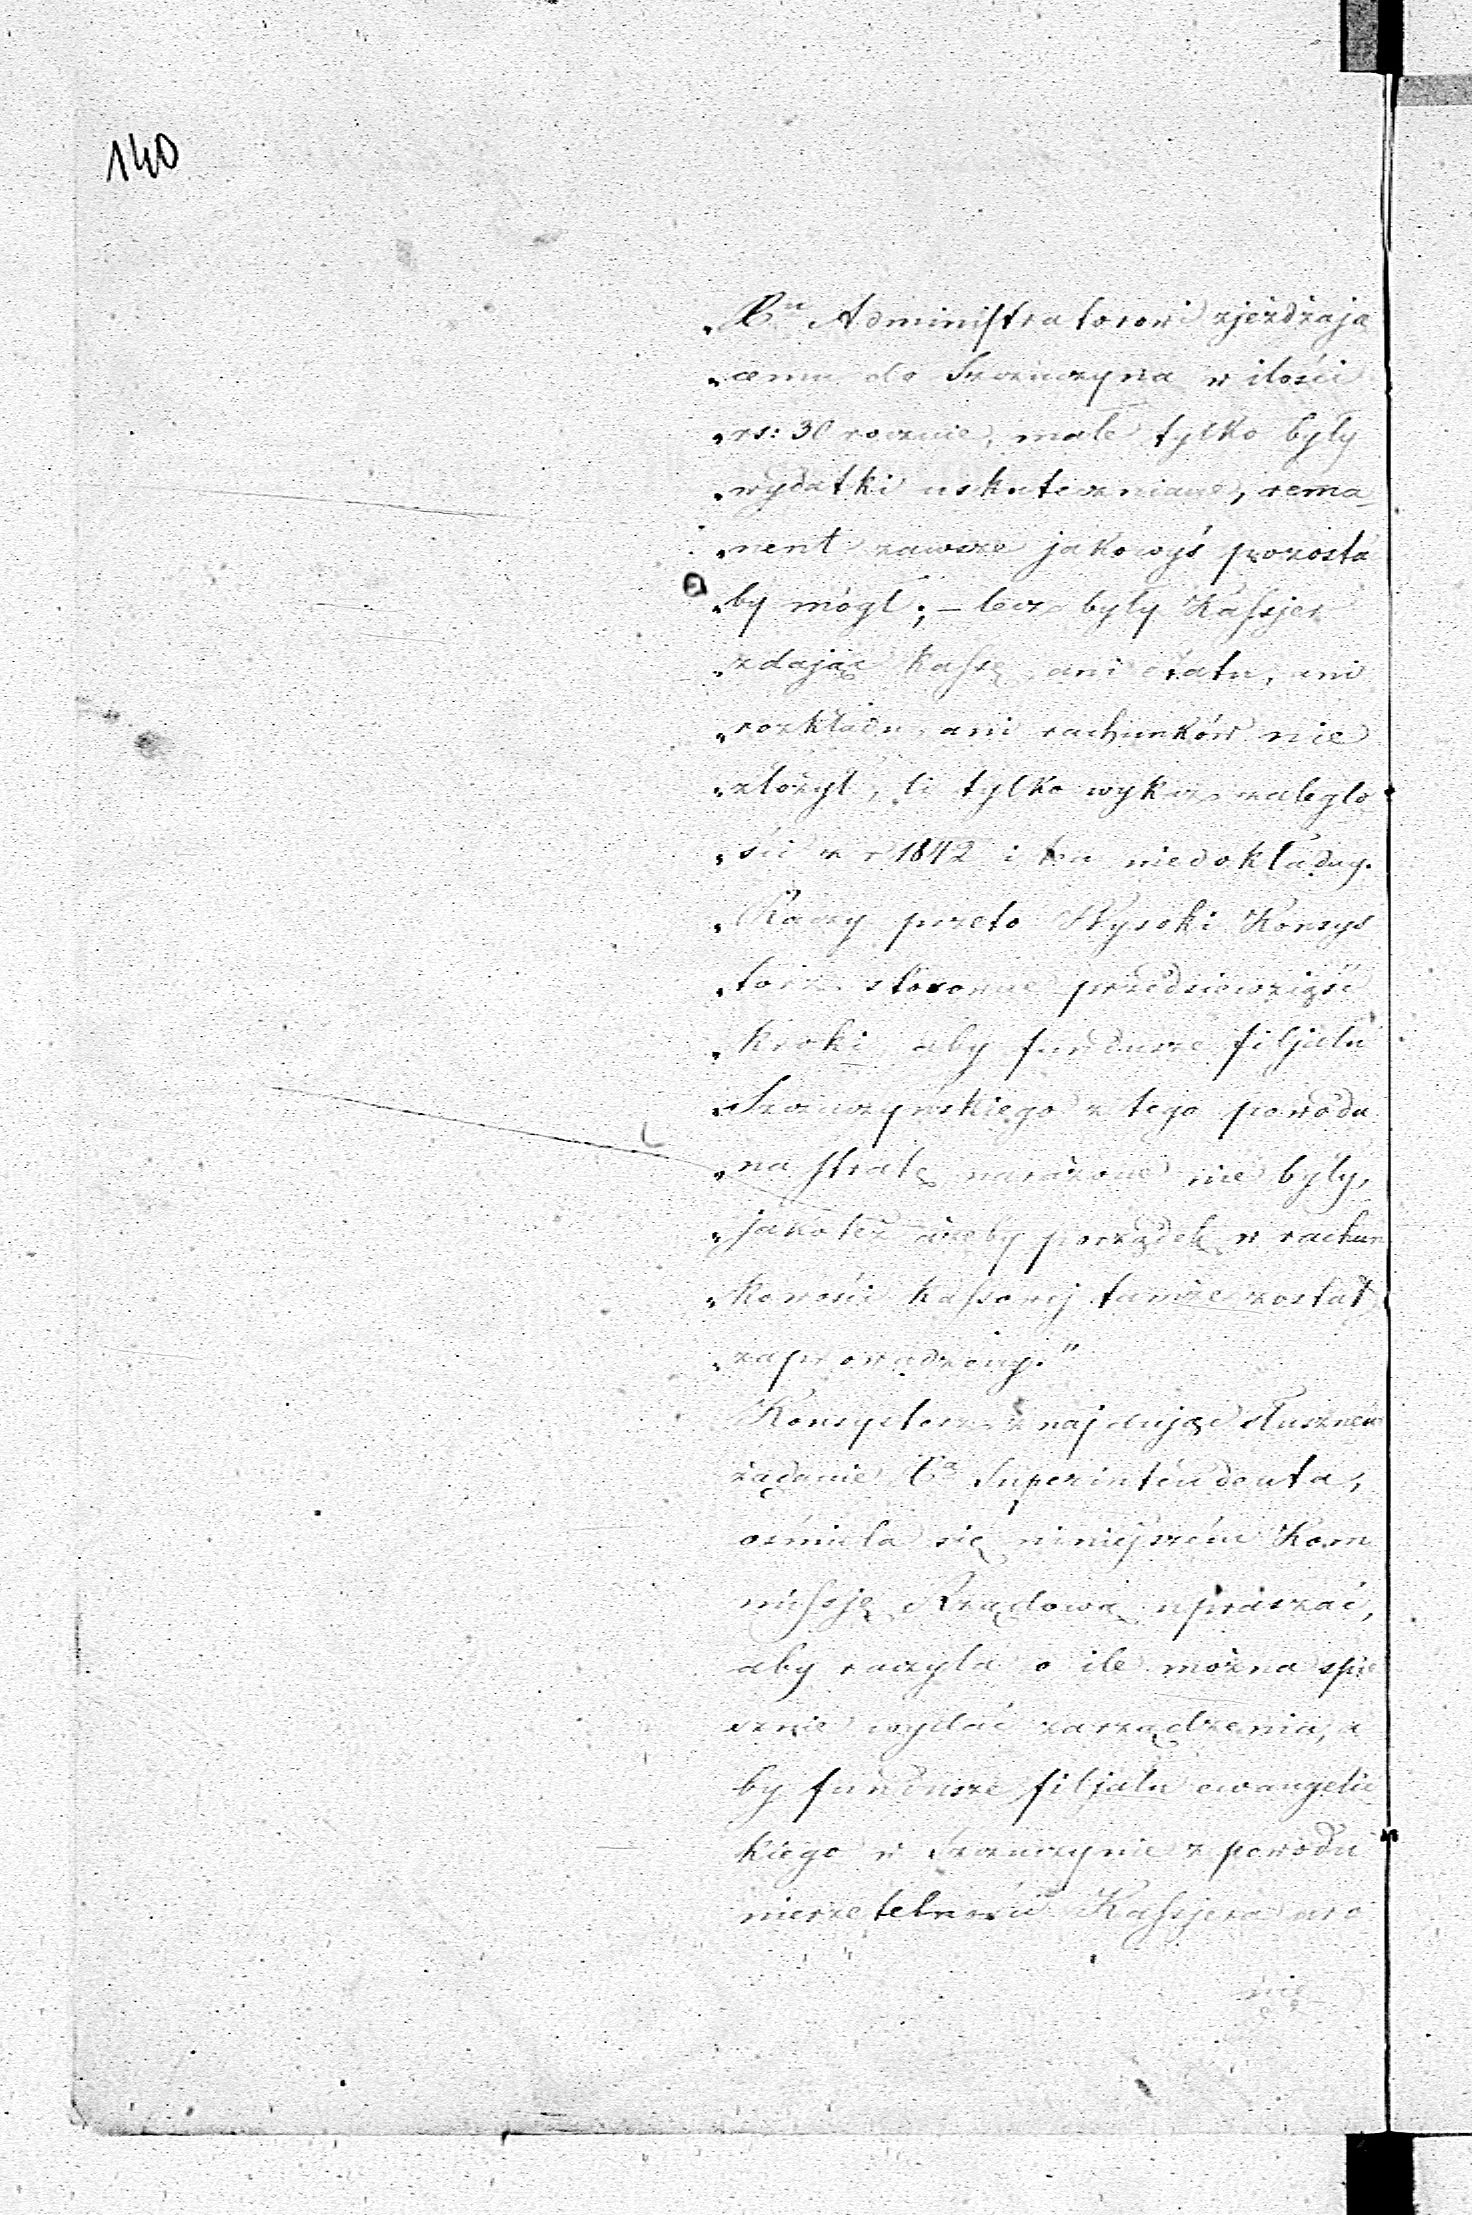 140
„Xu Administratorowi zjeżdżają
„cemu do Szczuczyna w ilości
„rs: 30 rocznie, małe tylko były
„wydatki uskuteczniane, rema
„nent zawsze jakowyś pozosta
„by mógł; – lecz były Kassjer
„zdając kassę, ani etatu, ani
„rozkładu, ani rachunków nie
„złożył, li tylko wykaz zaległo
„ści z r 1842 i ten niedokładny.
„Raczy przeto Wysoki Konsys
„torz stosowne przedsiewziąść
„kroki, aby fundusze filjału
„Szczuczyńskiego z tego powodu
„na stratę narażone nie były,
„jakoteż ażeby porządek w rachun
„kowości kassowej tamże został
„zaprowadzony.”
Konsystorz znajdując słusznem
żądanie Xa Superintendenta,
ośmiela się niniejszém Kom
missję Rządową upraszać,
aby raczyła o ile można spie
sznie wydać zarządzenia, a
by fundusze filjału ewangelic
kiego w Szczuczynie z powodu
nierzetelności Kassjera uro
nię